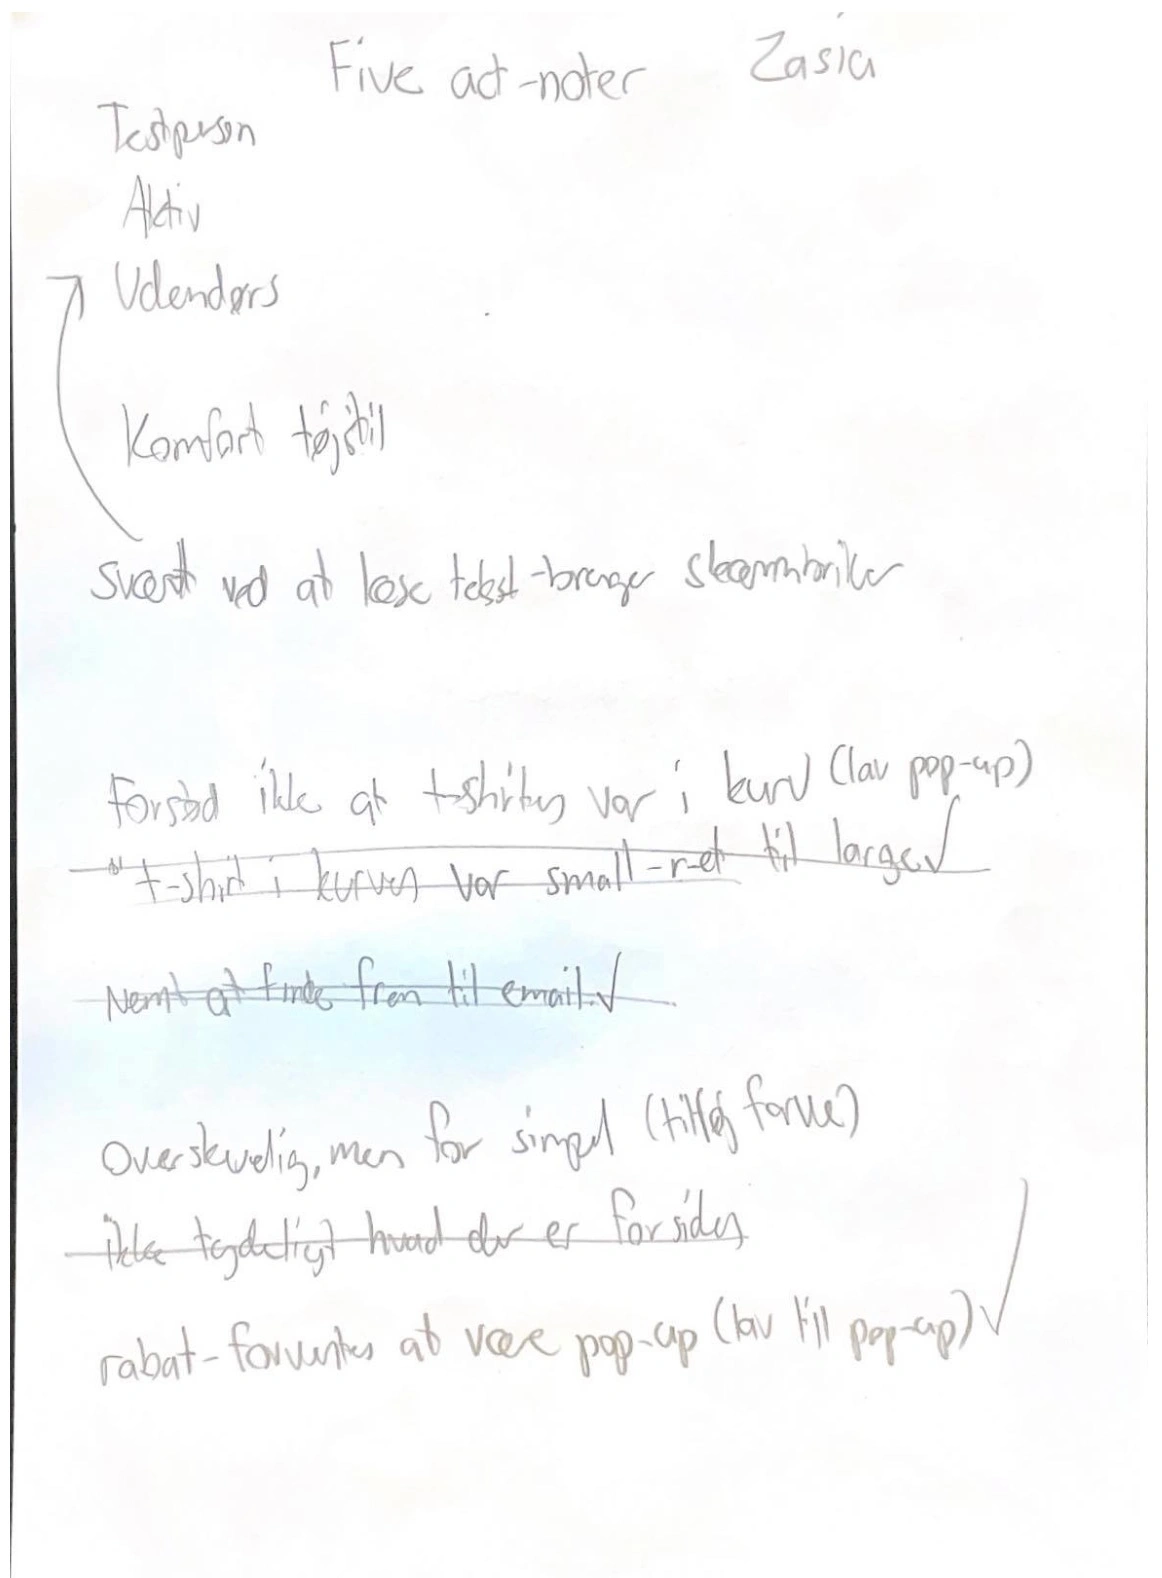 Five act-noter Zasia
Testperson
Aktiv
Udendørs
Komfort tøjstil
svært ved at læse tekst-bruger skærmbriller
Forstod ikke at t-shirten var i kurv (lav pop-up)
t-shirt i kurven var small-ret til large✓
Nemt at finde frem til email.✓
Overskuelig, men for simpel (tilføj farve)
ikke tydeligt hvad der er forsiden
rabat-forventes at være pop-up (lav till pop-up) ✓